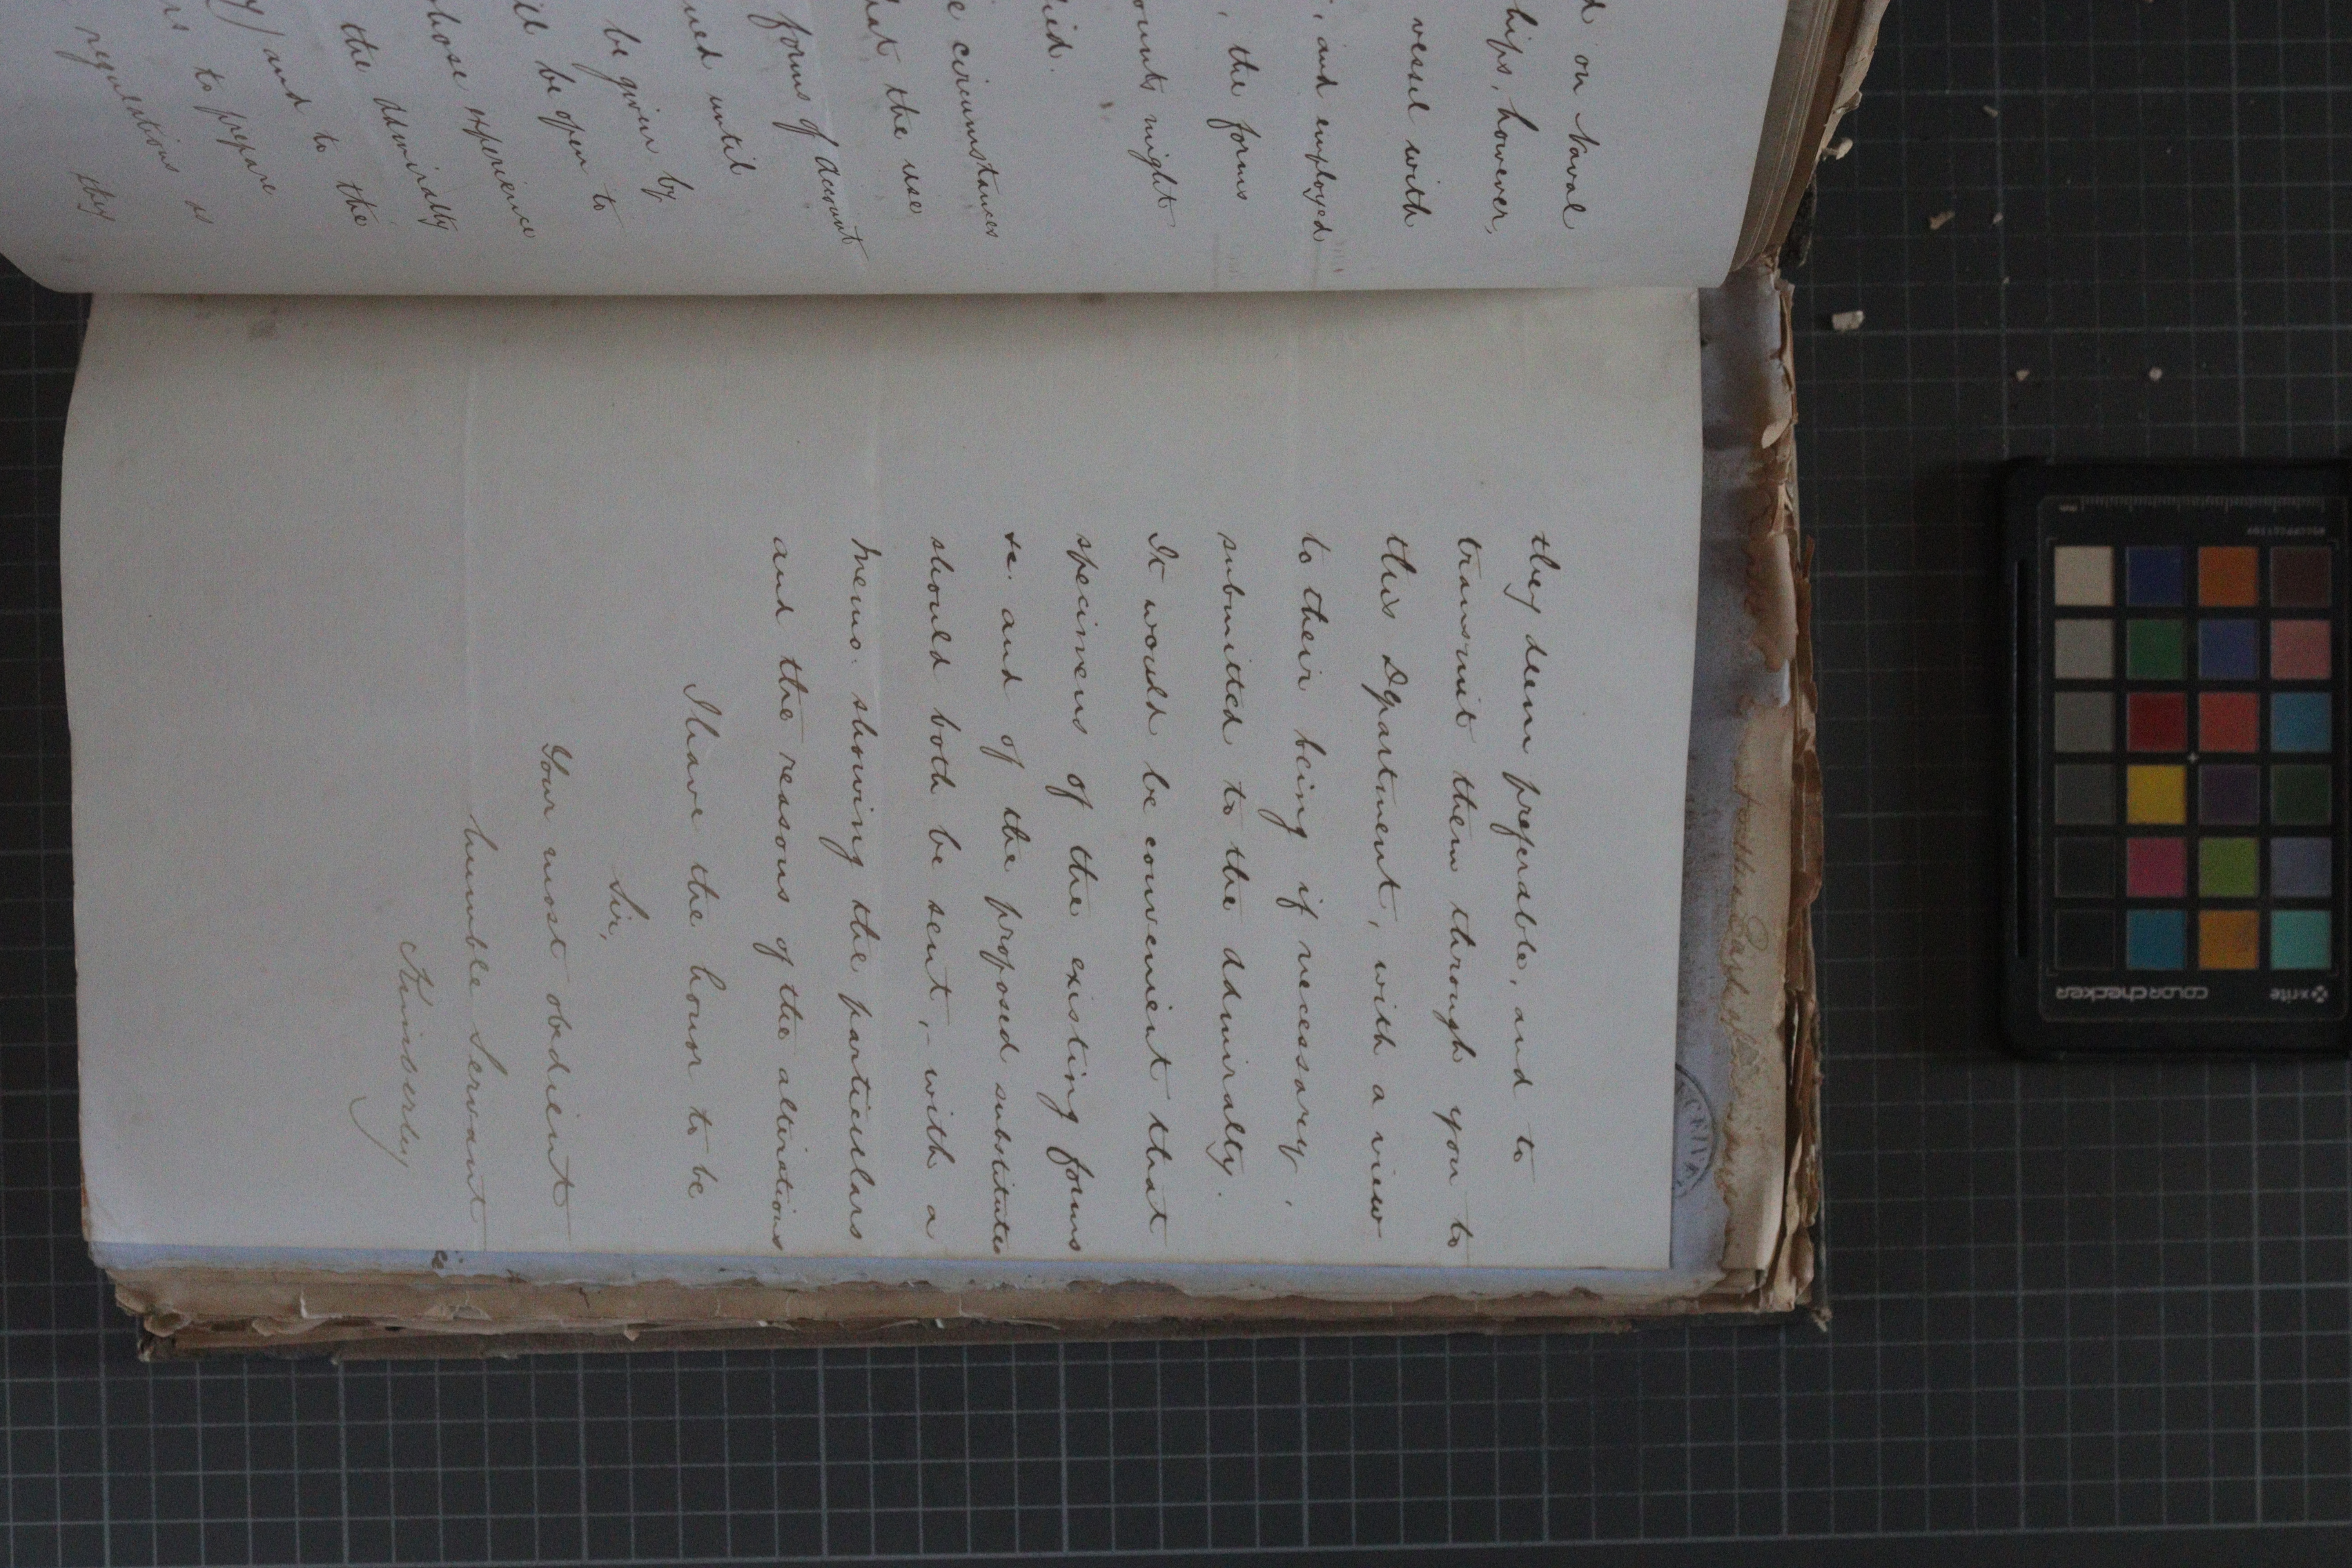 on Naval
hips, however,
vessel with
, and employed
, the forms
ounts might
ied.
e circumstances
hat the use
forms of account
ued until
be given by
ill be open to
whose experience
the Admiralty
and to the
rs to prepare
regulations as
they
they deem preferable, and to
transmit them through you to
this Department, with a view
to their being if necessary,
submitted to the Admiralty.
It would be convenient that
specimens of the existing forms
&c. and of the proposed substitutes
should both be sent, - with a
memo: showing the particulars
and the reasons of the alterations
I have the honor to be
Sir,
Your most obedient
humble Servant
Kimberley
x-rite
colorchecker